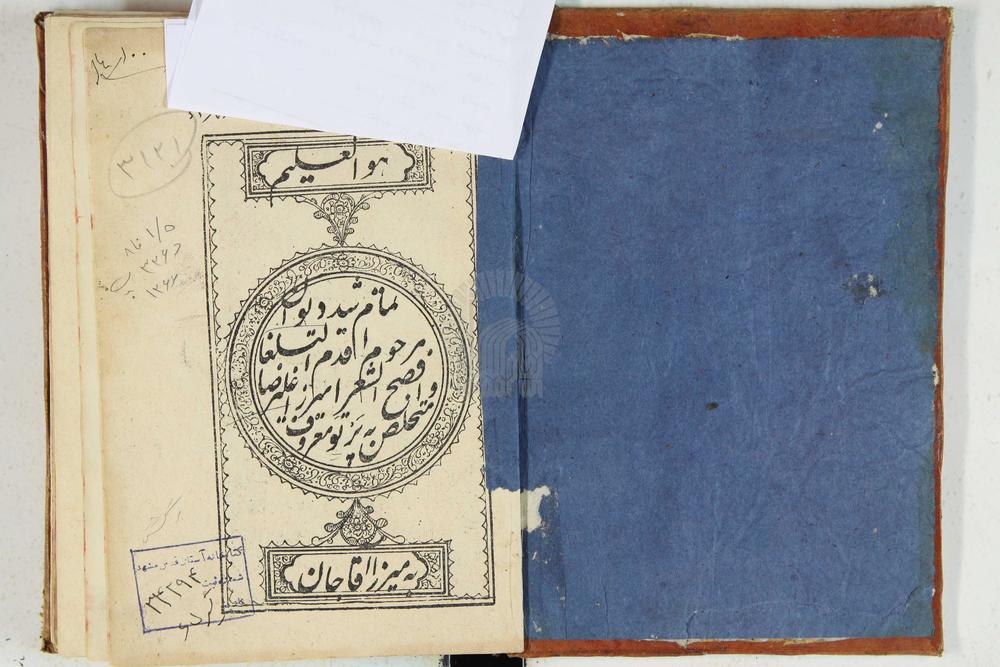 هو العلیم
۳۱۲۱
تمام شد دیوان
مرحوم اقدم البلغا
و افصح الشعرا میرزا علیرضا
متخلص به پرتو معروف
به میرزا اقا جان
کتابخانه آستان قدس مشهد
شماره ثبت ۳۴۲۹۴